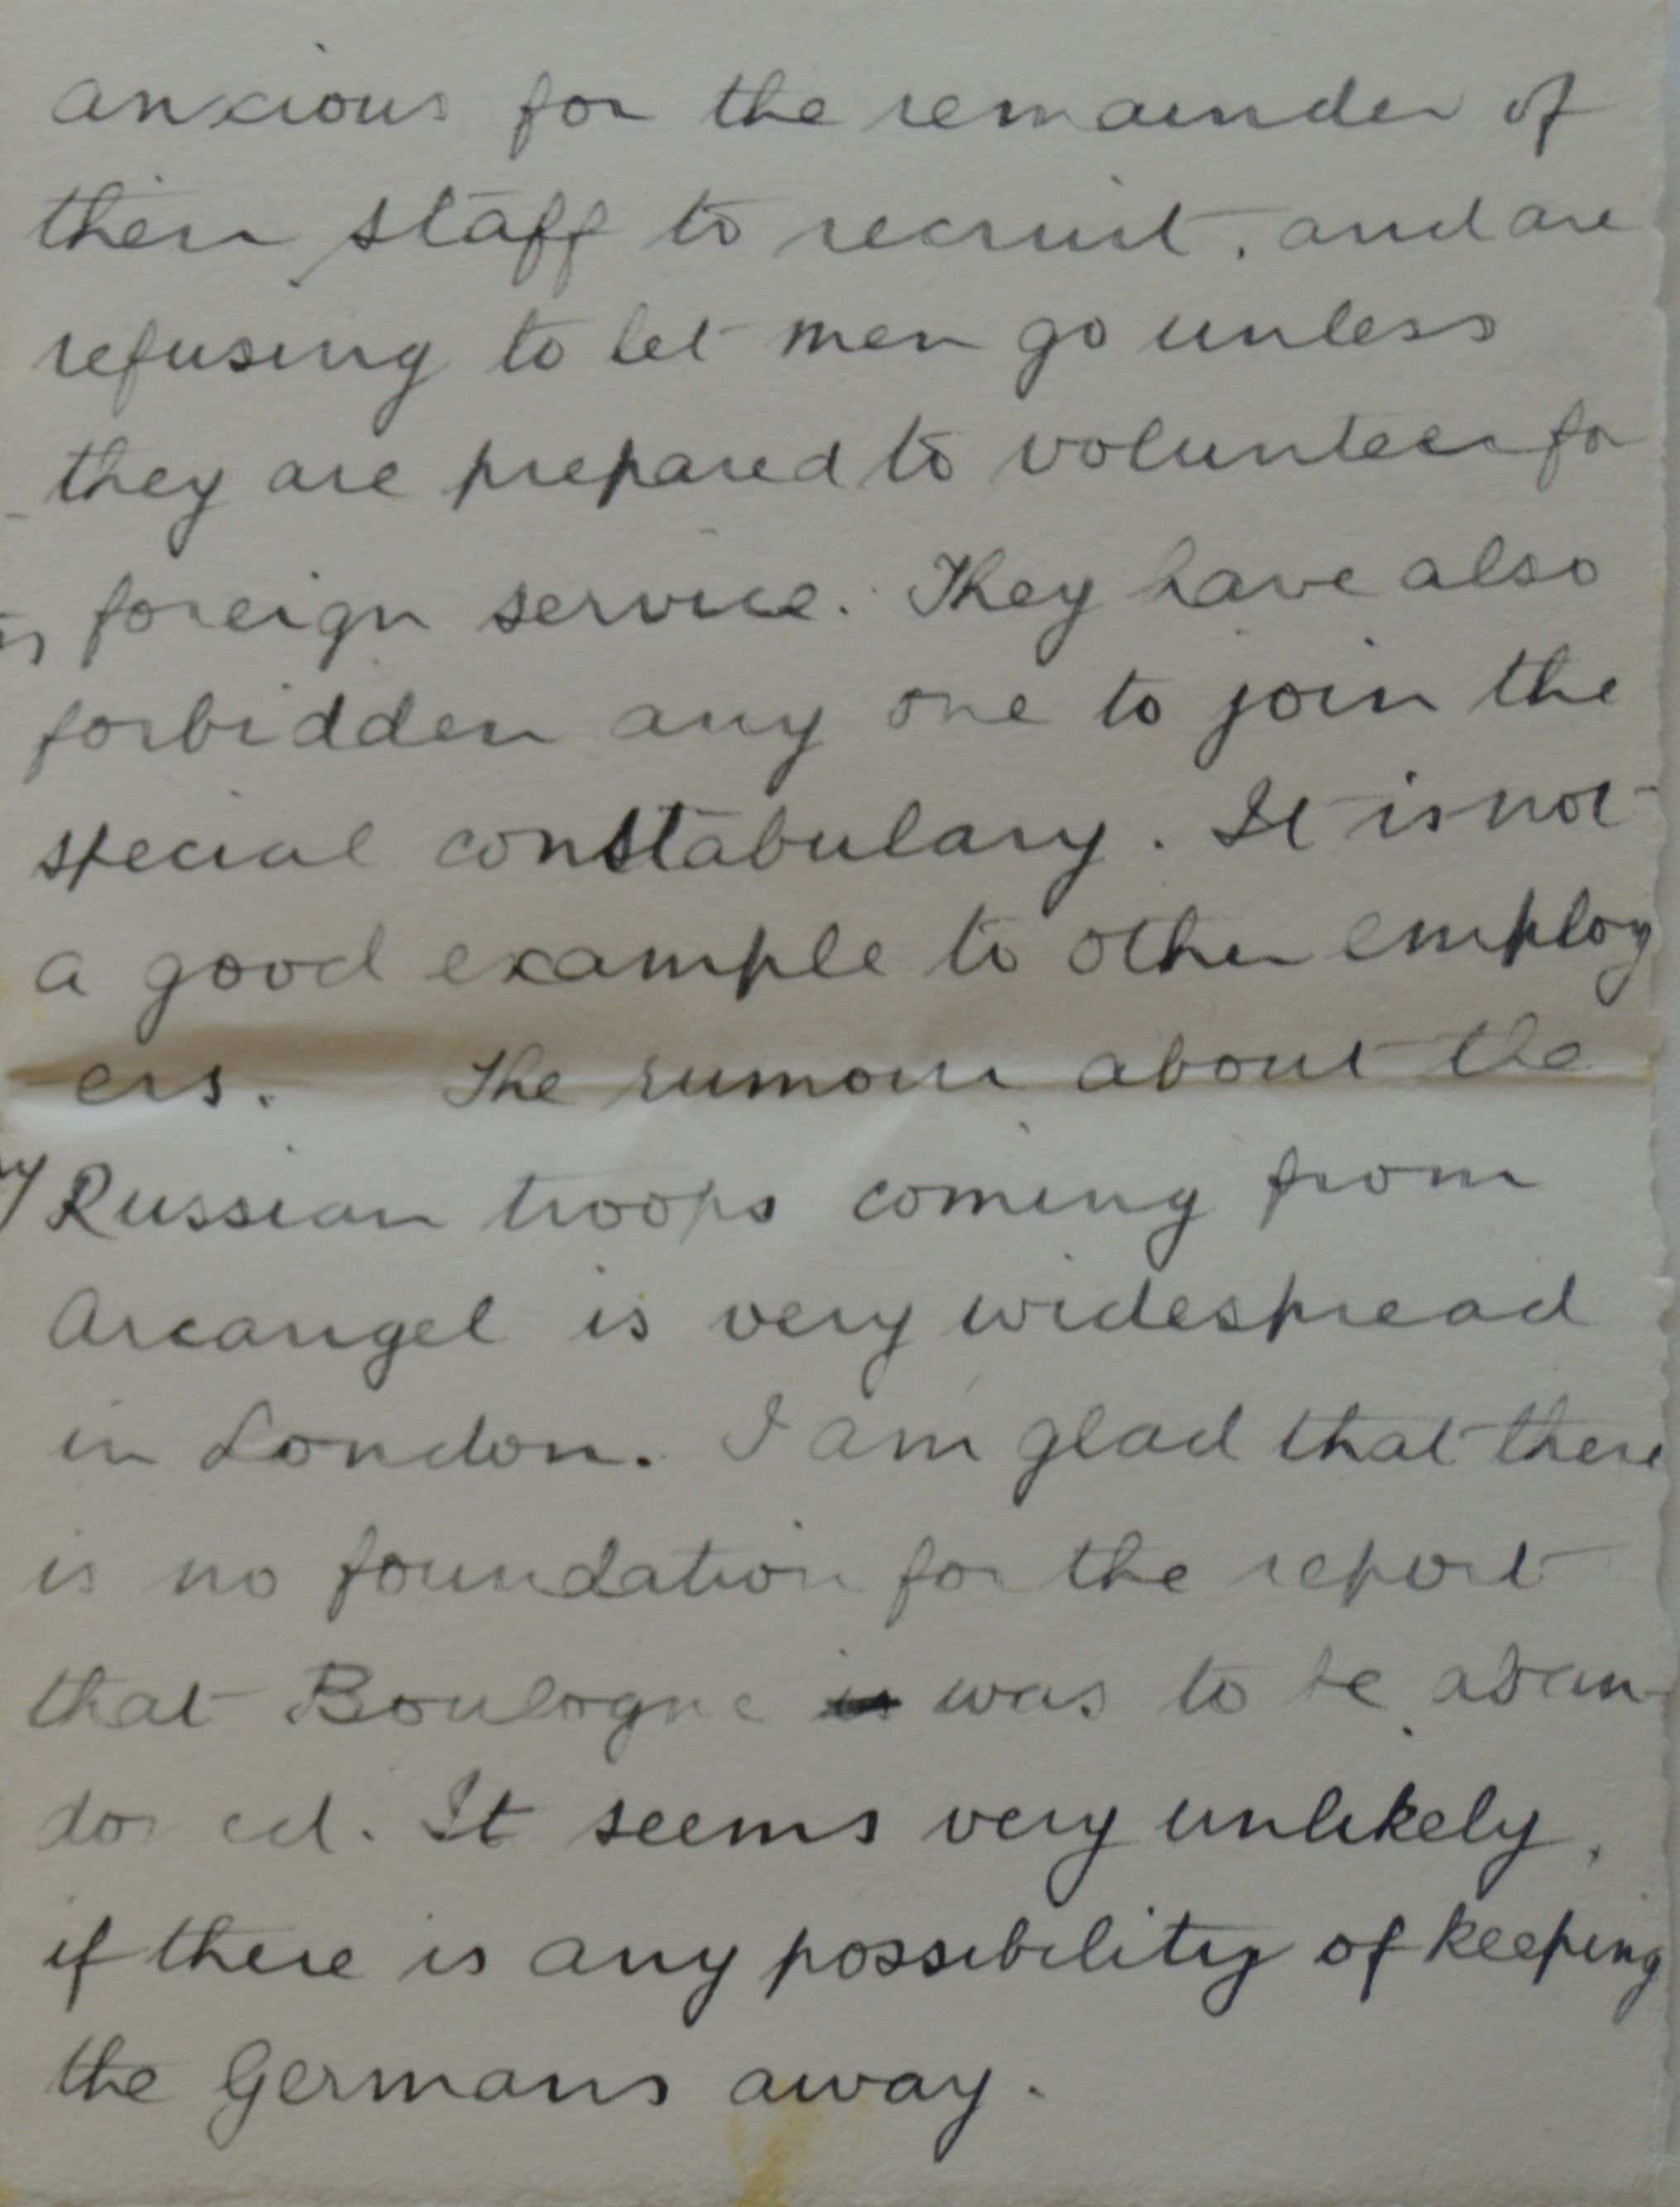 anxious for the remainder of
their staff to recruit, and are
refusing to let men go unless
they are prepared to volunteer for
foreign service. They have also
forbidden any one to join the
special constabulary. It is not
a good example to other employ
ers. The rumour about the
Russian troops coming from
Arcangel is very widespread
in London. I am glad that there
is no foundation for the report
that Boulogne is was to be aban-
doned. It seems very unlikely,
if there is any possibility of keeping
the Germans away.